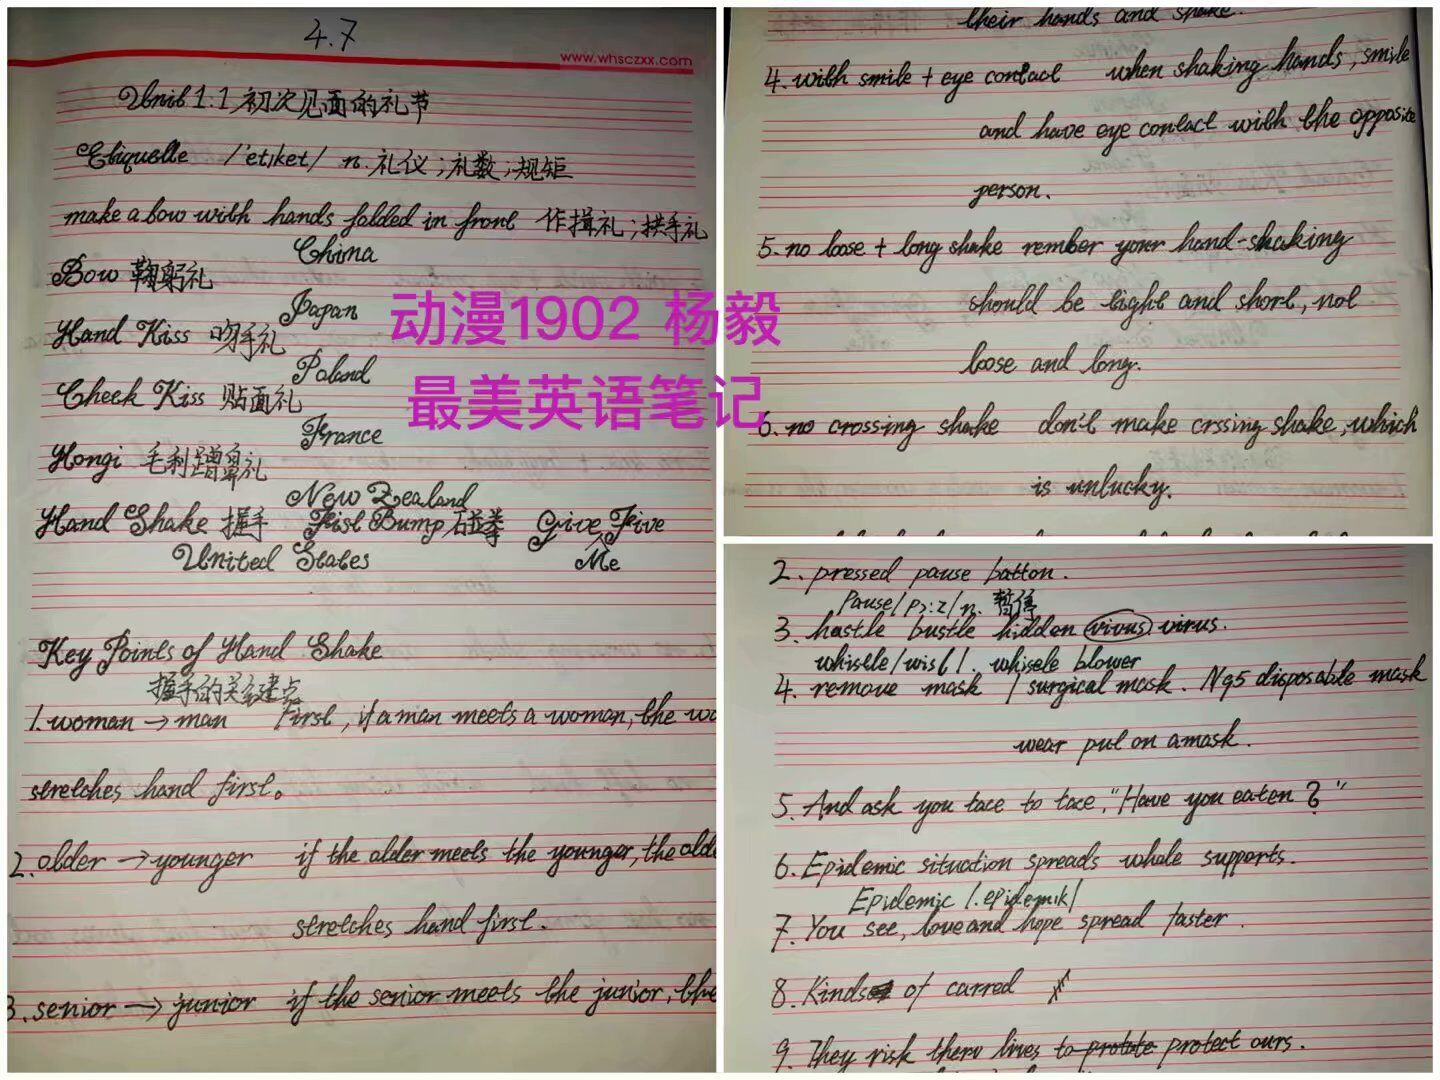 4.7
www.whsczxx.com
Unit 1.1 初次见面的礼节
Etiquette /'etɪket/ n. 礼仪；礼数；规矩
make a bow with hands folded in front 作揖礼；拱手礼
China
Bow 鞠躬礼
Japan
Hand Kiss 吻手礼
Poland
Cheek Kiss 贴面礼
France
Hongi 毛利蹭鼻礼
New Zealand
Hand Shake 握手 Fist Bump 碰拳 Give Five
United States Me
Key Points of Hand Shake
握手的关键点
1. woman → man first, if a man meets a woman, the wo
stretches hand first。
2. older → younger if the older meets the younger, the olde
stretches hand first.
3. senior → junior if the senior meets the junior, the
动漫1902 杨毅
最美英语笔记
their hands and shake.
4. with smile + eye contact when shaking hands, smile
and have eye contact with the opposite
person.
5. no loose + long shake rember your hand-shaking
should be tight and short, not
loose and long.
6. no crossing shake don't make crssing shake, which
is unlucky.
2. pressed pause batton.
Pause/pɔ:z/n. 暂停
3. hastle bustle hidden vivus virus.
whistle/wisl/. whistle blower
4. remove mask / surgical mask. N95 disposable mask
wear put on amask.
5. And ask you face to face, "Have you eaten?"
6. Epidemic situation spreads whole supports.
Epidemic /.epidemik/
7. You see, love and hope spread faster.
8. Kinds of carred
9. They risk there lives to protect ours.